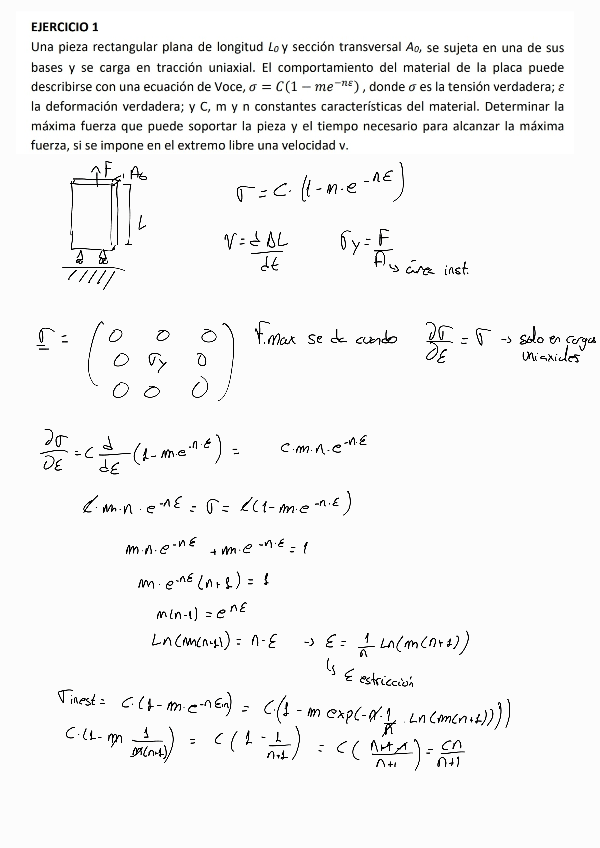 EJERCICIO 1
Una pieza rectangular plana de longitud L₀ y sección transversal A₀, se sujeta en una de sus
bases y se carga en tracción uniaxial. El comportamiento del material de la placa puede
describirse con una ecuación de Voce, σ = C(1 − me^{−nε}) , donde σ es la tensión verdadera; ε
la deformación verdadera; y C, m y n constantes características del material. Determinar la
máxima fuerza que puede soportar la pieza y el tiempo necesario para alcanzar la máxima
fuerza, si se impone en el extremo libre una velocidad v.
F A₀
L
σ = C· (1-m·e^{-nε})
V = dΔL/dt σy = F/A → área inst.
σ = (0 0 0
0 σy 0
0 0 0)
F.max se da cuando ∂σ/∂ε = σ → solo en cargas
uniaxiales
∂σ/∂ε = C d/dε (1-m·e^{-n·ε}) = C·m·n·e^{-n·ε}
C·m·n·e^{-nε} = σ = C(1-m·e^{-n·ε})
m·n·e^{-nε} + m·e^{-n·ε} = 1
m·e^{-nε}(n+1) = 1
m(n-1) = e^{nε}
Ln(m(n+1)) = n·ε → ε = 1/n Ln(m(n+1))
↳ ε estricción
σinest = C·(1-m·e^{-nεn}) = C·(1-m exp(-n·1/n·Ln(m(n+1))))
C·(1-m 1/m(n+1)) = C(1-1/n+1) = C(n+1-1/n+1) = Cn/n+1